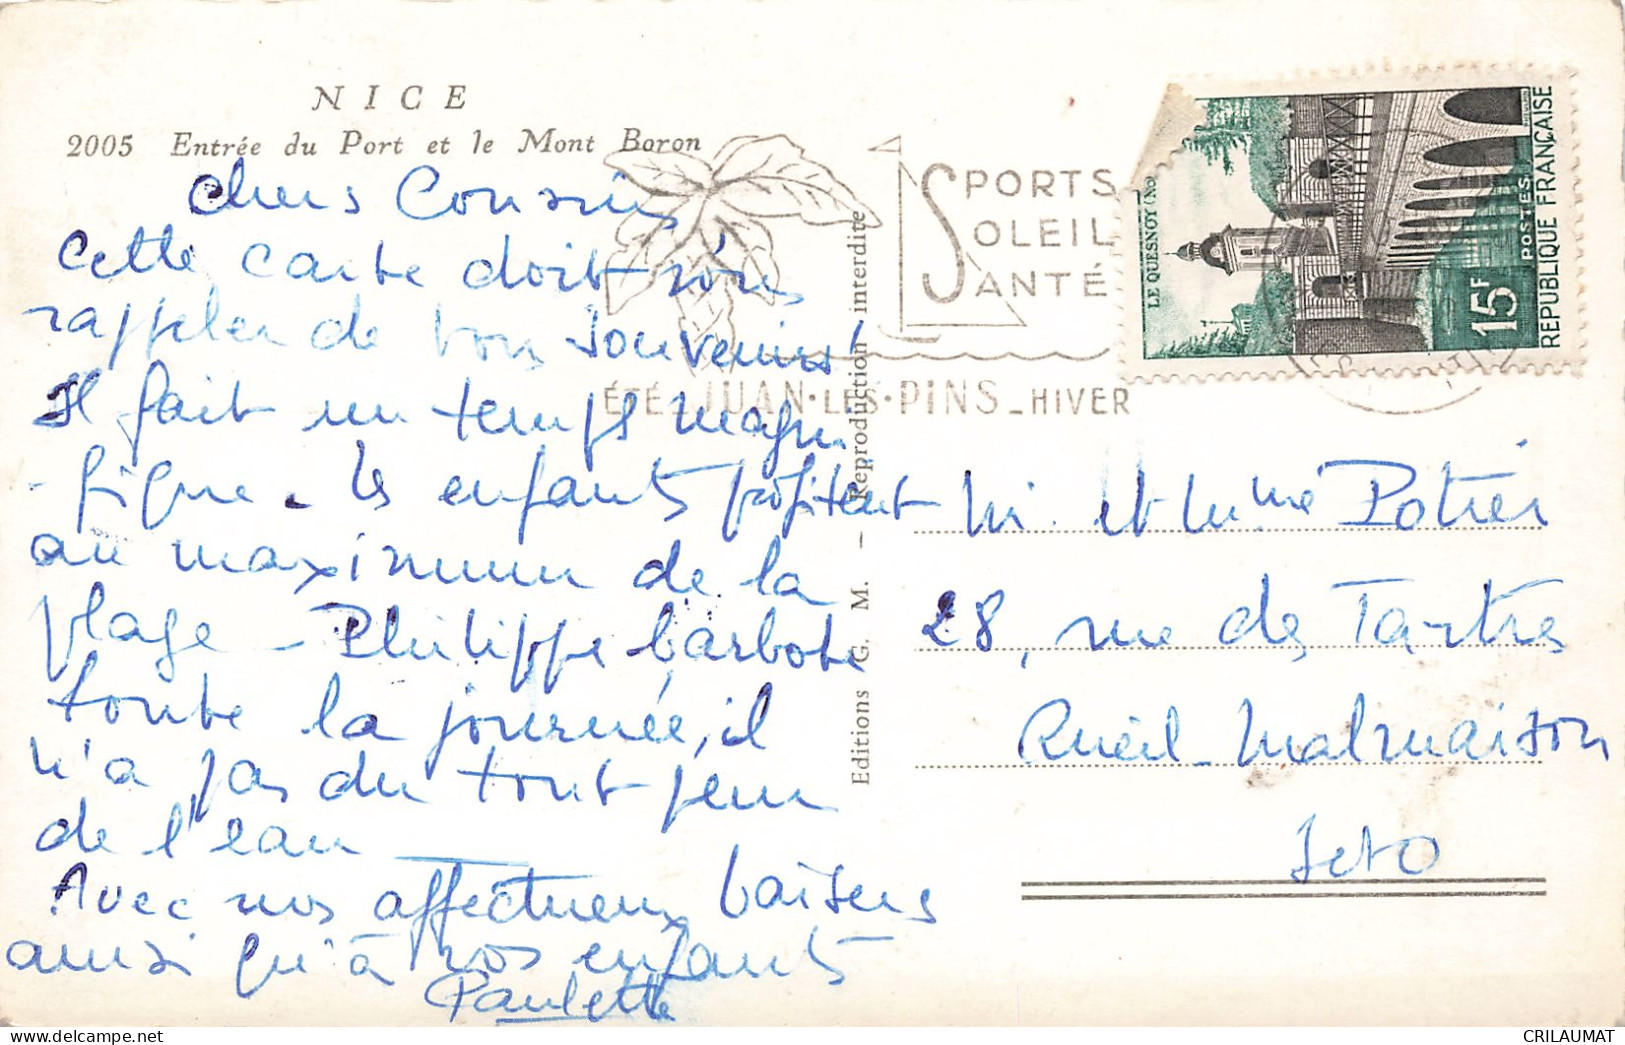 NICE
2005 Entrée du Port et le Mont Boron
Chers Cousins
Cette carte doit vous
rappeler de bons souvenirs
Il fait un temps magni
- fique - les enfants profitent
au maximum de la
plage - Philippe barbote
toute la journée, il
n'a pas du tout peur
de l'eau
Avec nos affectueux baisers
ainsi qu'à vos enfants
Paulette
Editions G. M. - Reproduction interdite
SPORTS
SOLEIL
SANTÉ
ÉTÉ - JUAN·LES·PINS - HIVER
LE QUESNOY (NORD)
15F
POSTES
REPUBLIQUE FRANÇAISE
M. et Mme Potier
28, rue des Tartres
Rueil-Malmaison
S et O
CRILAUMAT